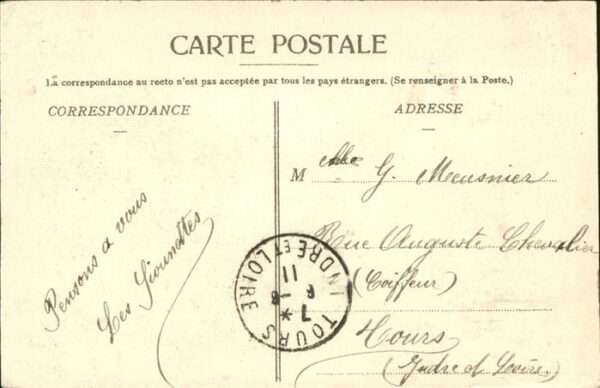 CARTE POSTALE
La correspondance au recto n'est pas acceptée par tous les pays étrangers. (Se renseigner à la Poste.)
CORRESPONDANCE
Pensons a vous
Les
ADRESSE
M elle G. Meusnier
Rue Auguste Chevalier
(Coiffeur)
Tours
(Indre et Loire.)
TOURS
INDRE ET LOIRE
7 *
6 - 6
11